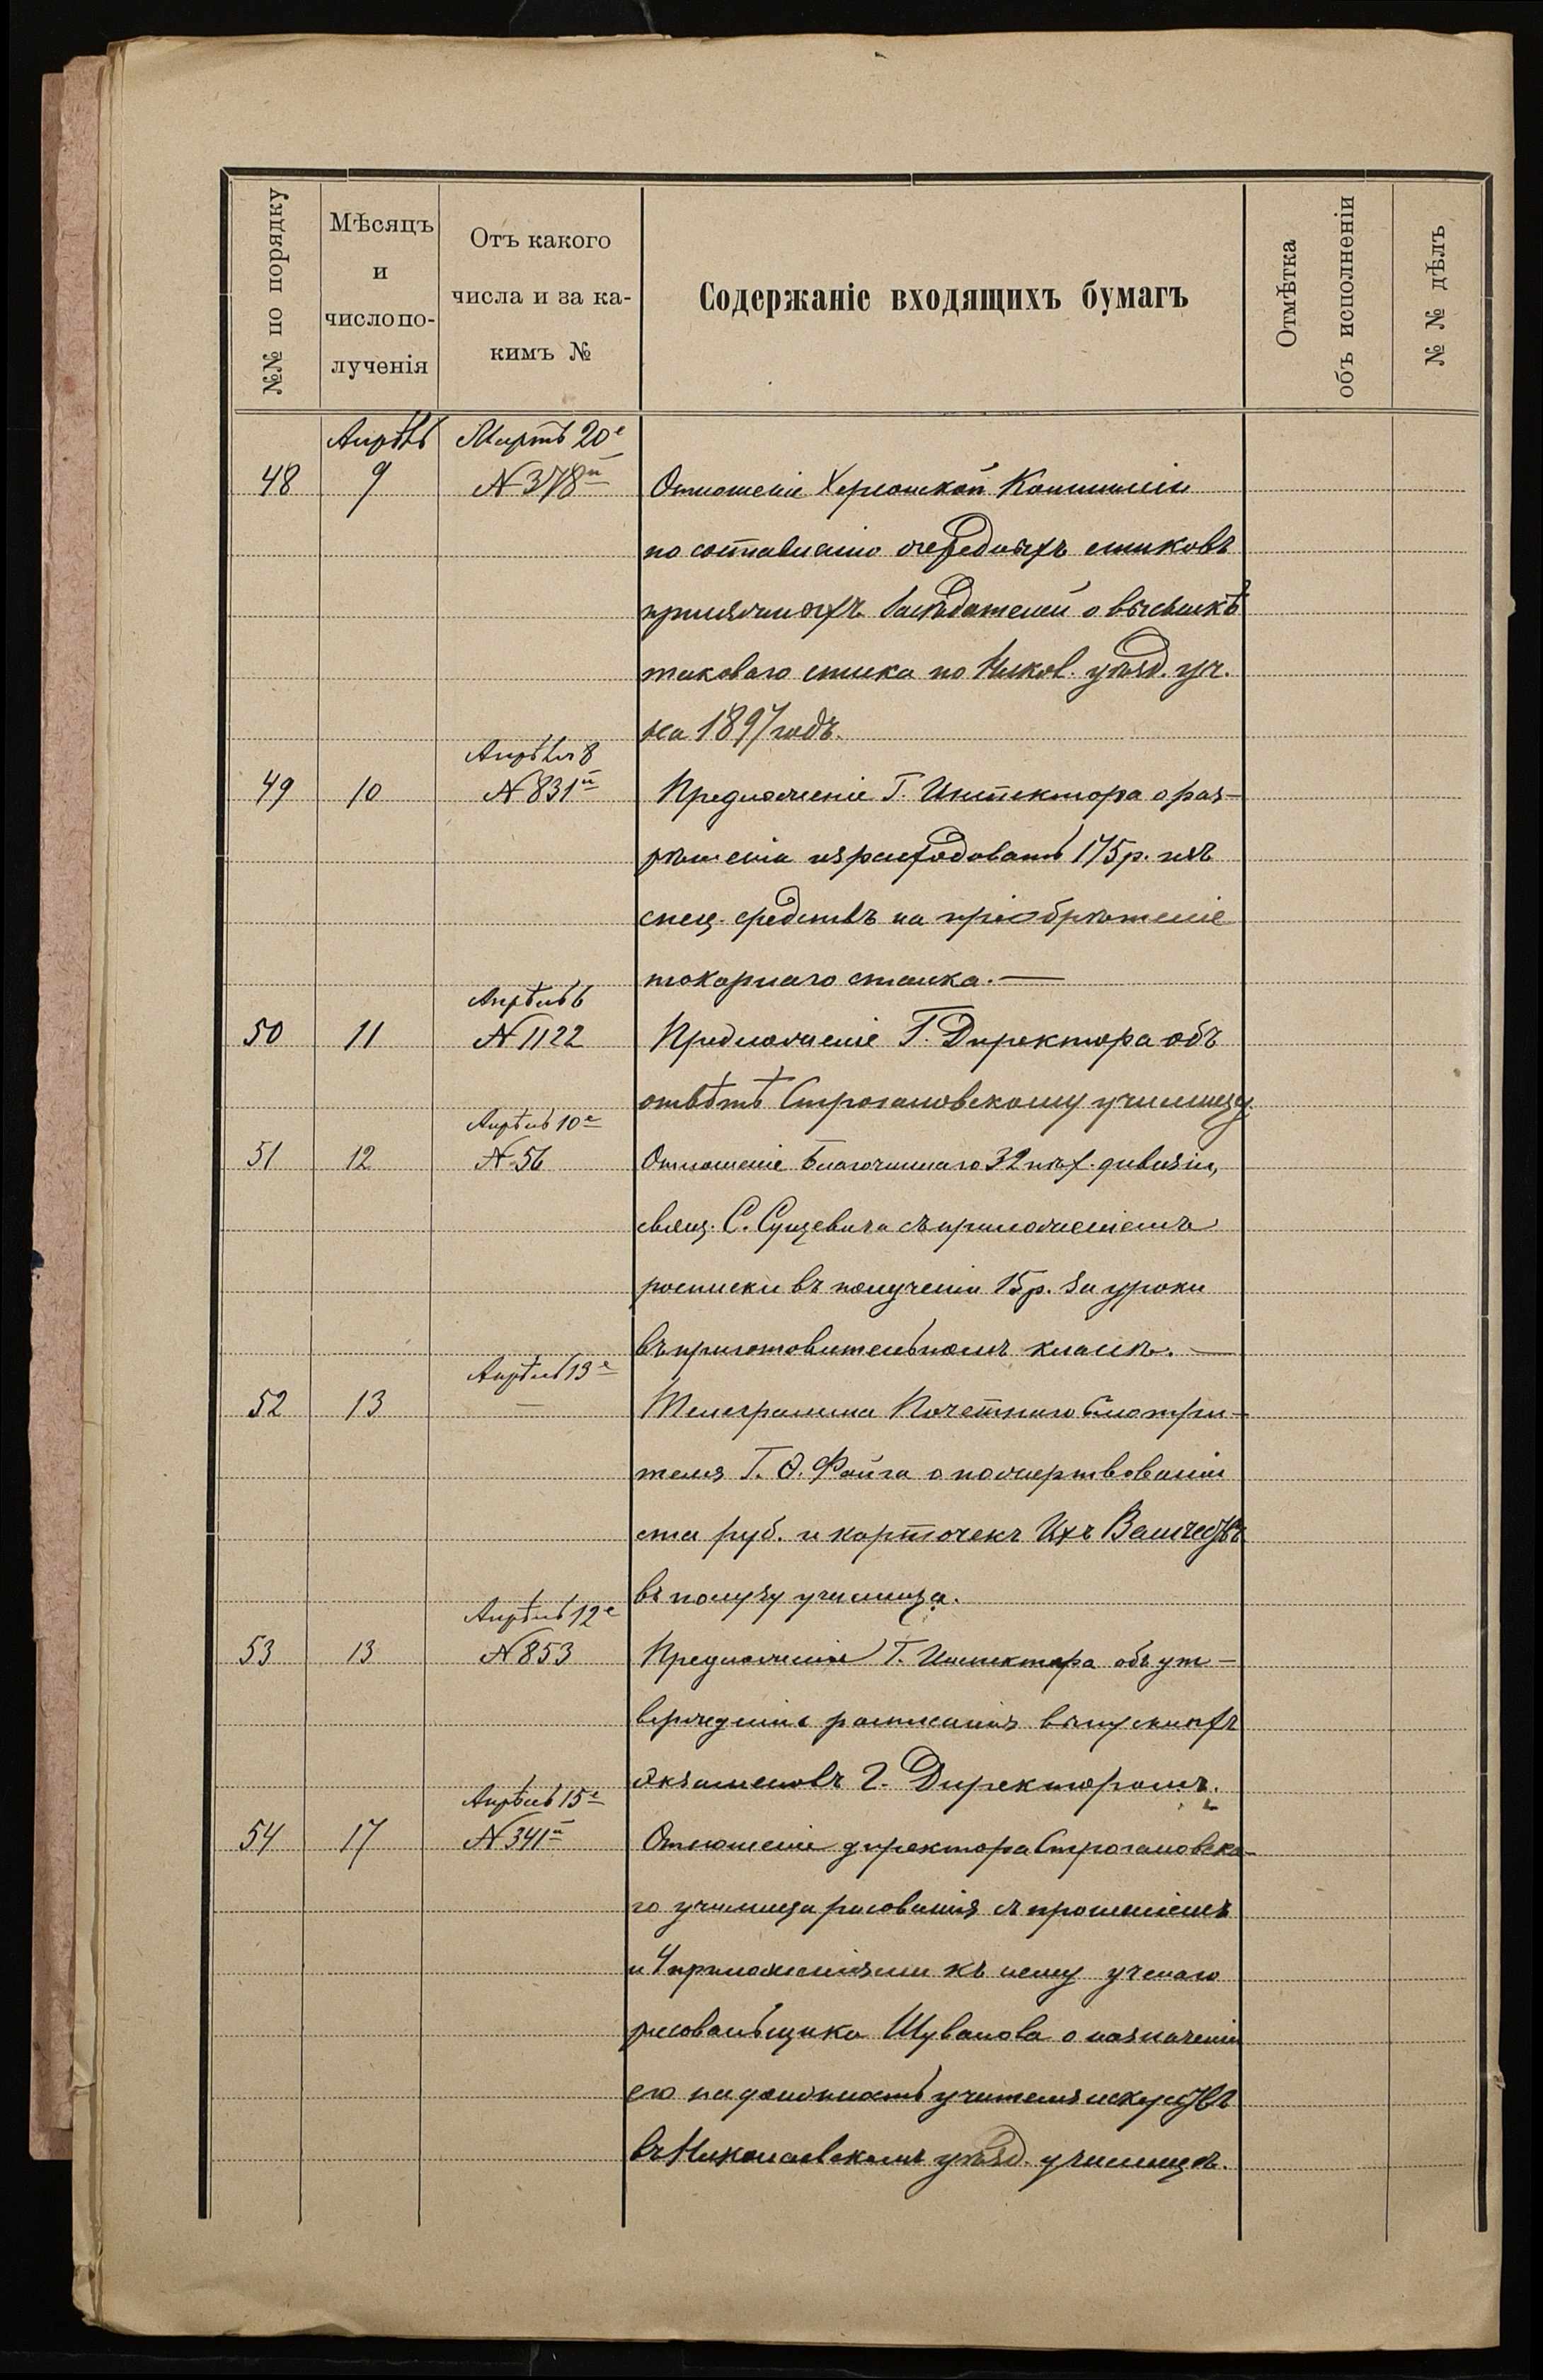 №№ по порядку
Мѣсяцъ
и
число по-
лученія
Отъ какого
числа и за ка-
кимъ №
Содержаніе входящихъ бумагъ
Отмѣтка
объ исполненіи
№ № дѣлъ
Апрѣль Мартъ 20е
48 9 № 378й Отношеніе Херсонской Коммиссіи
по составленію очередныхъ списковъ
присяжныхъ засѣдателей о высылкѣ
таковаго списка по Никол. уѣзд. уч.
на 1897 годъ.
Апрѣля 8
49 10 № 831й Предложеніе Г. Инспектора о раз-
рѣшеніи израсходовать 175 р. изъ
спец. средствъ на пріобрѣтеніе
токарнаго станка. —
Апрѣль 6
50 11 № 1122 Предложеніе Г. Директора объ
отвѣтѣ Строгановскому училищу.
Апрѣль 10е
51 12 № 56 Отношеніе Благочиннаго 32 пѣх. дивизіи,
свящ. С. Сущевича съ приложеніемъ
росписки въ полученіи 15 р. за уроки
въ приготовительномъ классѣ. —
Апрѣль 13е
52 13 — Телеграмма Почетнаго Смотри-
теля Г. Ѳ. Файга о пожертвованіи
ста руб. и карточекъ Ихъ Величествъ
въ пользу училища.
Апрѣль 12е
53 13 № 853 Предложеніе Г. Инспектора объ ут-
вержденіи росписанія выпускныхъ
экзаменовъ Г. Директоромъ.
Апрѣль 15е
54 17 № 341й Отношеніе директора Строгановска-
го училища рисованія съ прошеніемъ
и 4 приложеніями къ нему ученаго
рисовальщика Шувалова о назначеніи
его на должность учителя искусствъ
въ Николаевскомъ уѣзд. училищѣ.